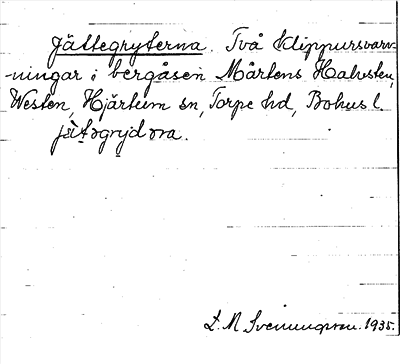 Jättegryterna. Två klippursvarv-
-ningar i bergåsen Mårtens Halvsten,
Westen, Hjärtum sn, Torpe hd, Bohus l.
jätogrydora.
L. M Svenungsson. 1935.